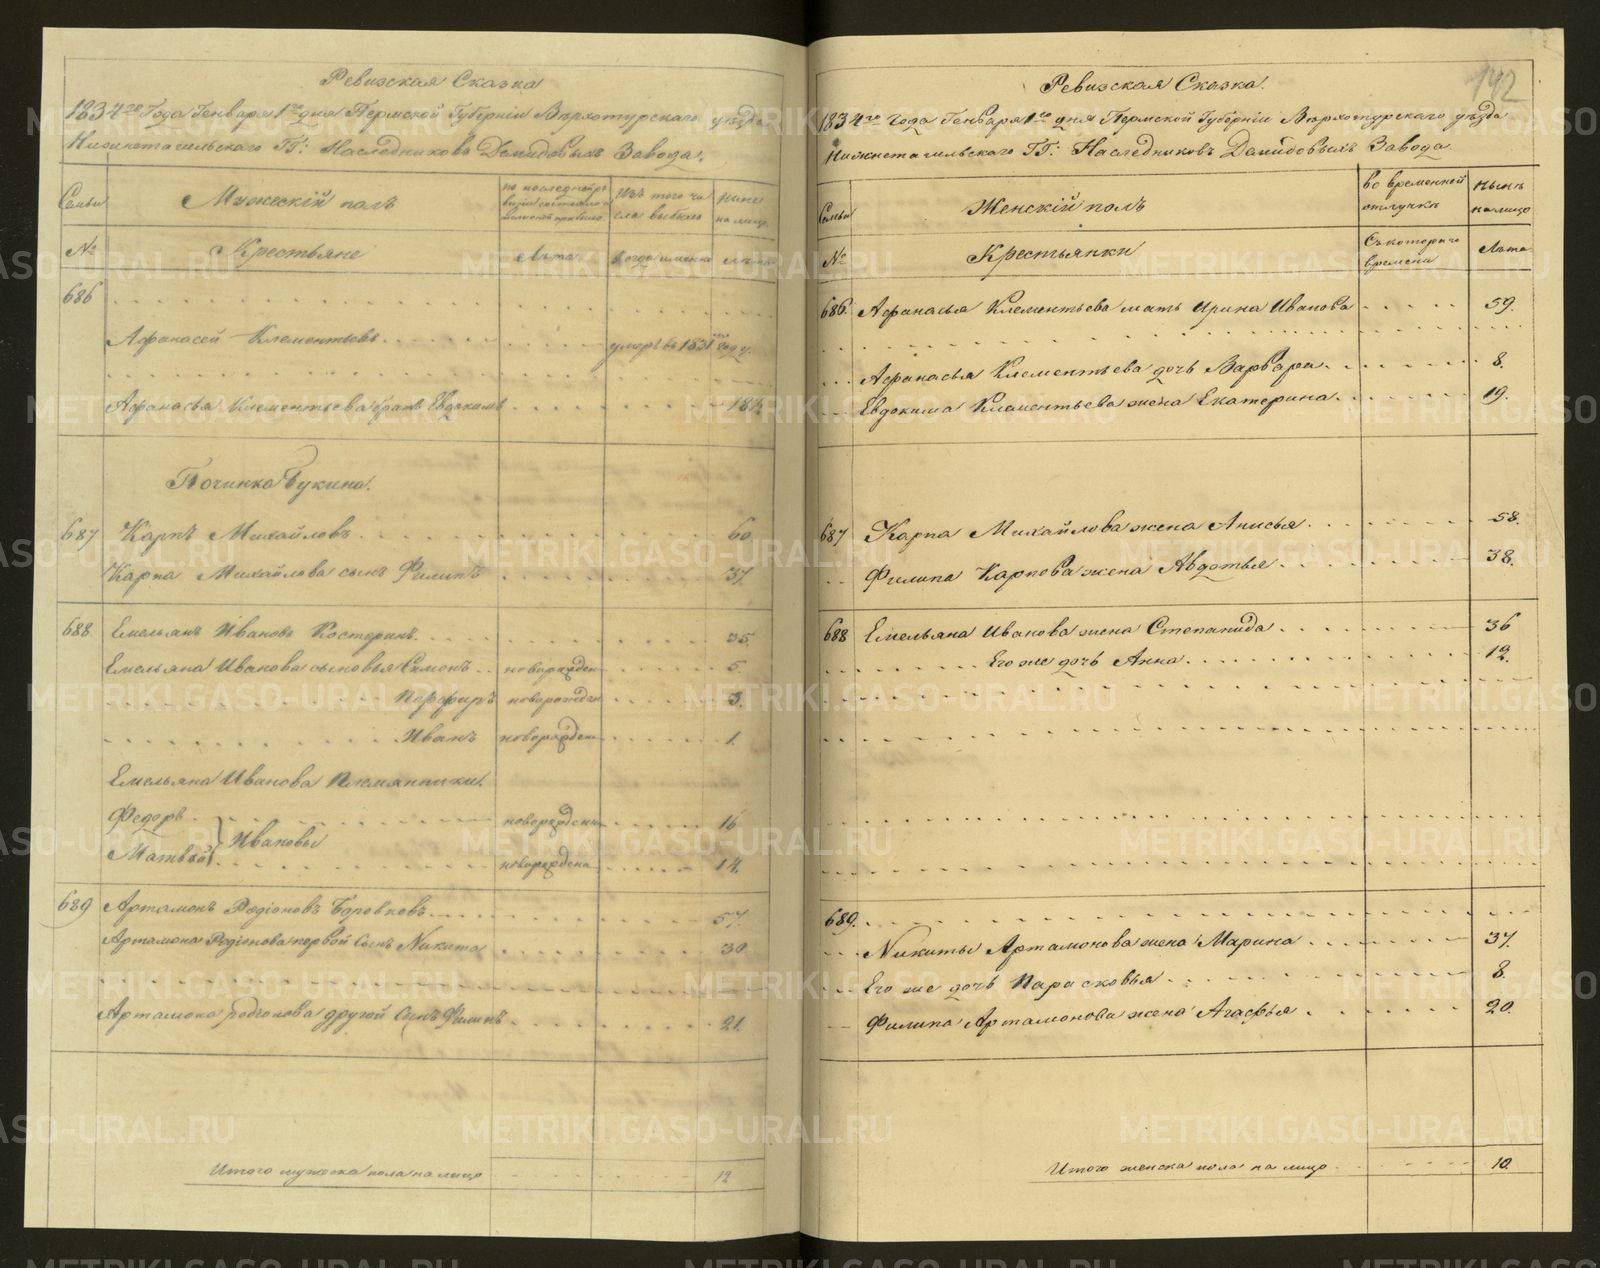 Ревизская Сказка
1834го Года Генваря 1го дня Пермской Губерніи Верхотурскаго уѣзда
Нижнетагильскаго ГГ: Наследниковъ Демидовыхъ Завода.
Семьи Мужескій полъ по последней ревизіи состояло и Изъ того числа выбыло Ныне на лицо
№ Крестьяне Лѣта Когда именно Лѣта
686
Афанасей Клементьевъ умеръ въ 1831 году
Афанасья Клементьева братъ Евдокимъ 18½
Починка Букина.
687 Карпъ Михайловъ 60
Карпа Михайлова сынъ Филипъ 37
688 Емельянъ Ивановъ Костеринъ 35
Емельяна Иванова сыновья Симонъ новорожден 5
Порфиръ новорожден 3
Иванъ новорожден 1
Емельяна Иванова племянники
Федоръ новорожден 16
Ивановы
Матвей новорожден 14
689 Артамонъ Родіоновъ Боровковъ 57
Артамона Родіонова первой сынъ Никита 30
Артамона Родіонова другой сынъ Филипъ 21
Итого мужеска пола на лицо 12
142
Ревизская Сказка
1834го Года Генваря 1го дня Пермской Губерніи Верхотурскаго уѣзда
Нижнетагильскаго ГГ: Наследниковъ Демидовыхъ Завода
Семьи Женскій полъ во временной отлучке Нынѣ на лицо
№ Крестьянки Съ котораго времени Лѣта
686 Афанасья Клементьева мать Ирина Иванова 59
Афанасья Клементьева дочь Варвара 8
Евдокима Клементьева жена Екатерина 19
687 Карпа Михайлова жена Анисья 58
Филипа Карпова жена Авдотья 38
688 Емельяна Иванова жена Степанида 36
Его же дочь Анна 12
689
Никиты Артамонова жена Марина 37
Его же дочь Парасковья 8
Филипа Артамонова жена Агафья 20
Итого женска пола на лицо 10
METRIKI.GASO-URAL.RU